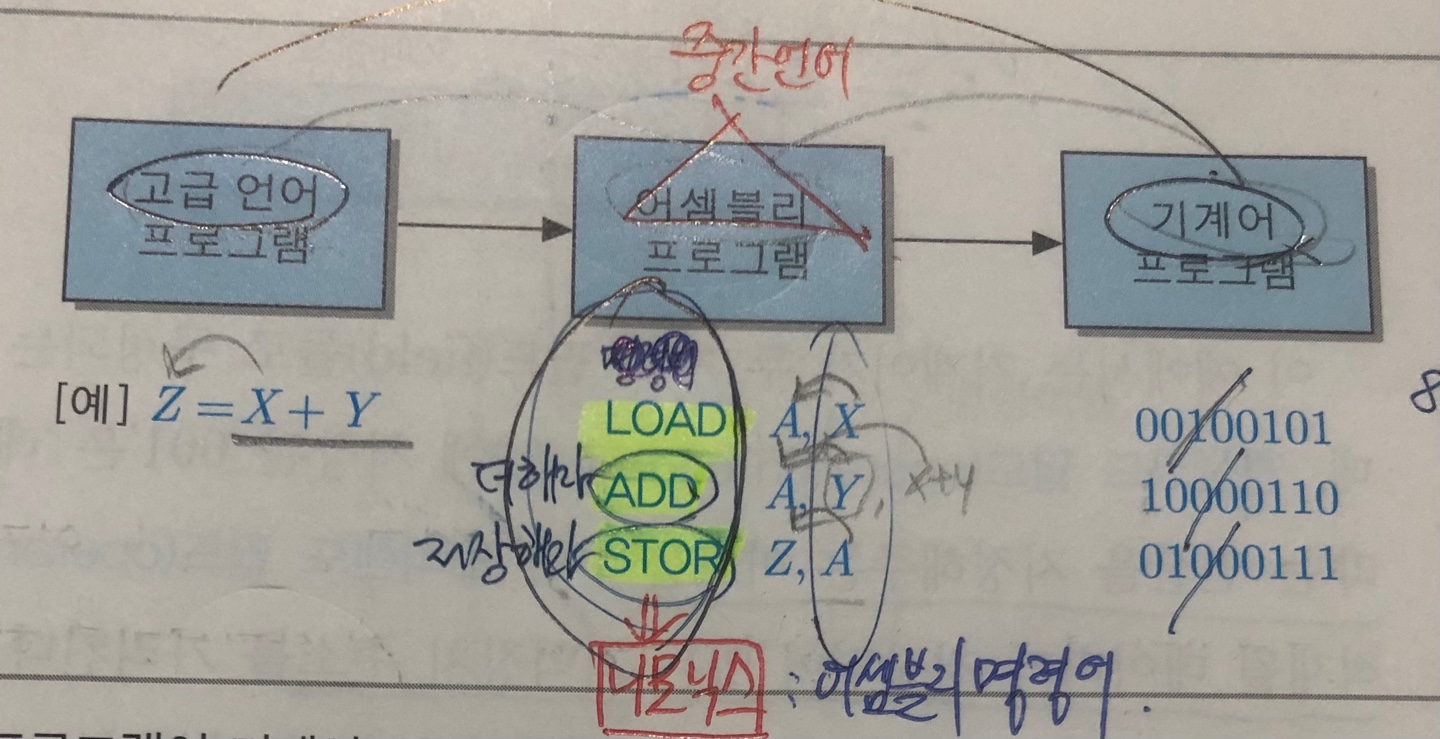 중간언어
고급 언어
프로그램
어셈블리
프로그램
기계어
프로그램
[예] Z = X + Y
LOAD A, X
더해라 ADD A, Y, X+Y
저장해라 STOR Z, A
00100101
10000110
01000111
8
니모닉스 : 어셈블리 명령어.